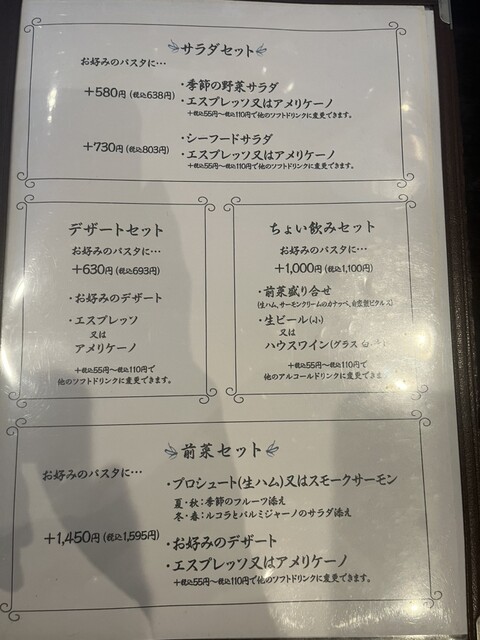 サラダセット
お好みのパスタに…
+580円(税込638円)
・季節の野菜サラダ
・エスプレッソ又はアメリケーノ
+税込55円〜税込110円で他のソフトドリンクに変更できます。
+730円(税込803円)
・シーフードサラダ
・エスプレッソ又はアメリケーノ
+税込55円〜税込110円で他のソフトドリンクに変更できます。
デザートセット
お好みのパスタに…
+630円(税込693円)
・お好みのデザート
・エスプレッソ
又は
アメリケーノ
+税込55円〜税込110円で
他のソフトドリンクに変更できます。
ちょい飲みセット
お好みのパスタに…
+1,000円(税込1,100円)
・前菜盛り合せ
(生ハム、サーモンクリームのカナッペ、自家製ピクルス)
・生ビール(小)
又は
ハウスワイン(グラス 白
+税込55円〜税込110円で
他のアルコールドリンクに変更できま
前菜セット
お好みのパスタに…
+1,450円(税込1,595円)
・プロシュート(生ハム)又はスモークサーモン
夏・秋:季節のフルーツ添え
冬・春:ルコラとパルミジャーノのサラダ添え
・お好みのデザート
・エスプレッソ又はアメリケーノ
+税込55円〜税込110円で他のソフトドリンクに変更できます。